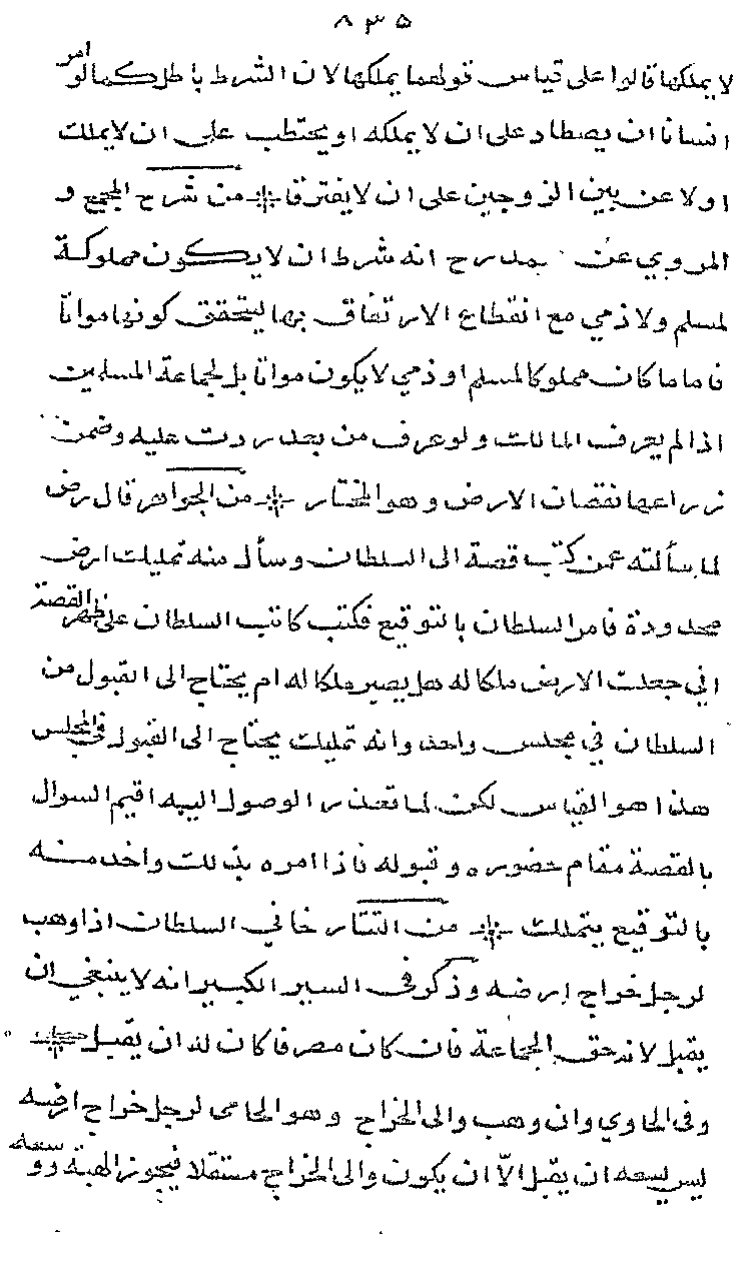 ٨٣٥
لا يملكها قالوا على قياس قولهما يملكها لان الشرط باطل كما لو امر
انسانا ان يصطاد على ان لا يملكه او يحتطب على ان لا يملك
اولا عن بين الزوجين على ان لا يفترقا من شرح المجمع و
المروي عن مدرح انه شرط ان لا يكون مملوكة
لمسلم ولا ذمي مع انقطاع الارتفاق بها ليتحقق كونها مواتا
فاما ما كان مملوكا لمسلم او ذمي لا يكون مواتا بل لجماعة المسلمين
اذا لم يعرف المالك ولو عرف من بعد ردت عليه وضمن
زراعها نقصان الارض وهو المختار من الجواهر قال رض
لما سألته عمن كتب قصة الى السلطان وسأل منه تمليك ارض
محدودة فامر السلطان بالتوقيع فكتب كاتب السلطان على ظهر القصة
اني جعلت الارض ملكا له هل يصير ملكا له ام يحتاج الى القبول من
السلطان في مجلس واحد وانه تمليك يحتاج الى القبول في المجلس
هذا هو القياس لكن لما تعذر الوصول اليه اقيم السوال
بالقصة مقام حضوره وقبوله فاذا امره بذلك واخذ منه
بالتوقيع يتملك من التتار خاني السلطان اذا وهب
لرجل خراج ارضه وذكر في السير الكبير انه لا ينبغي ان
يقبل لانه حق الجماعة فان كان مصرفا كان له ان يقبل
وفي الحاوي وان وهب والى الخراج وهو الحامى لرجل خراج ارضه
ليس يسعه ان يقبل الّا ان يكون والى الخراج مستقلا فيجوز الهبة وسعه